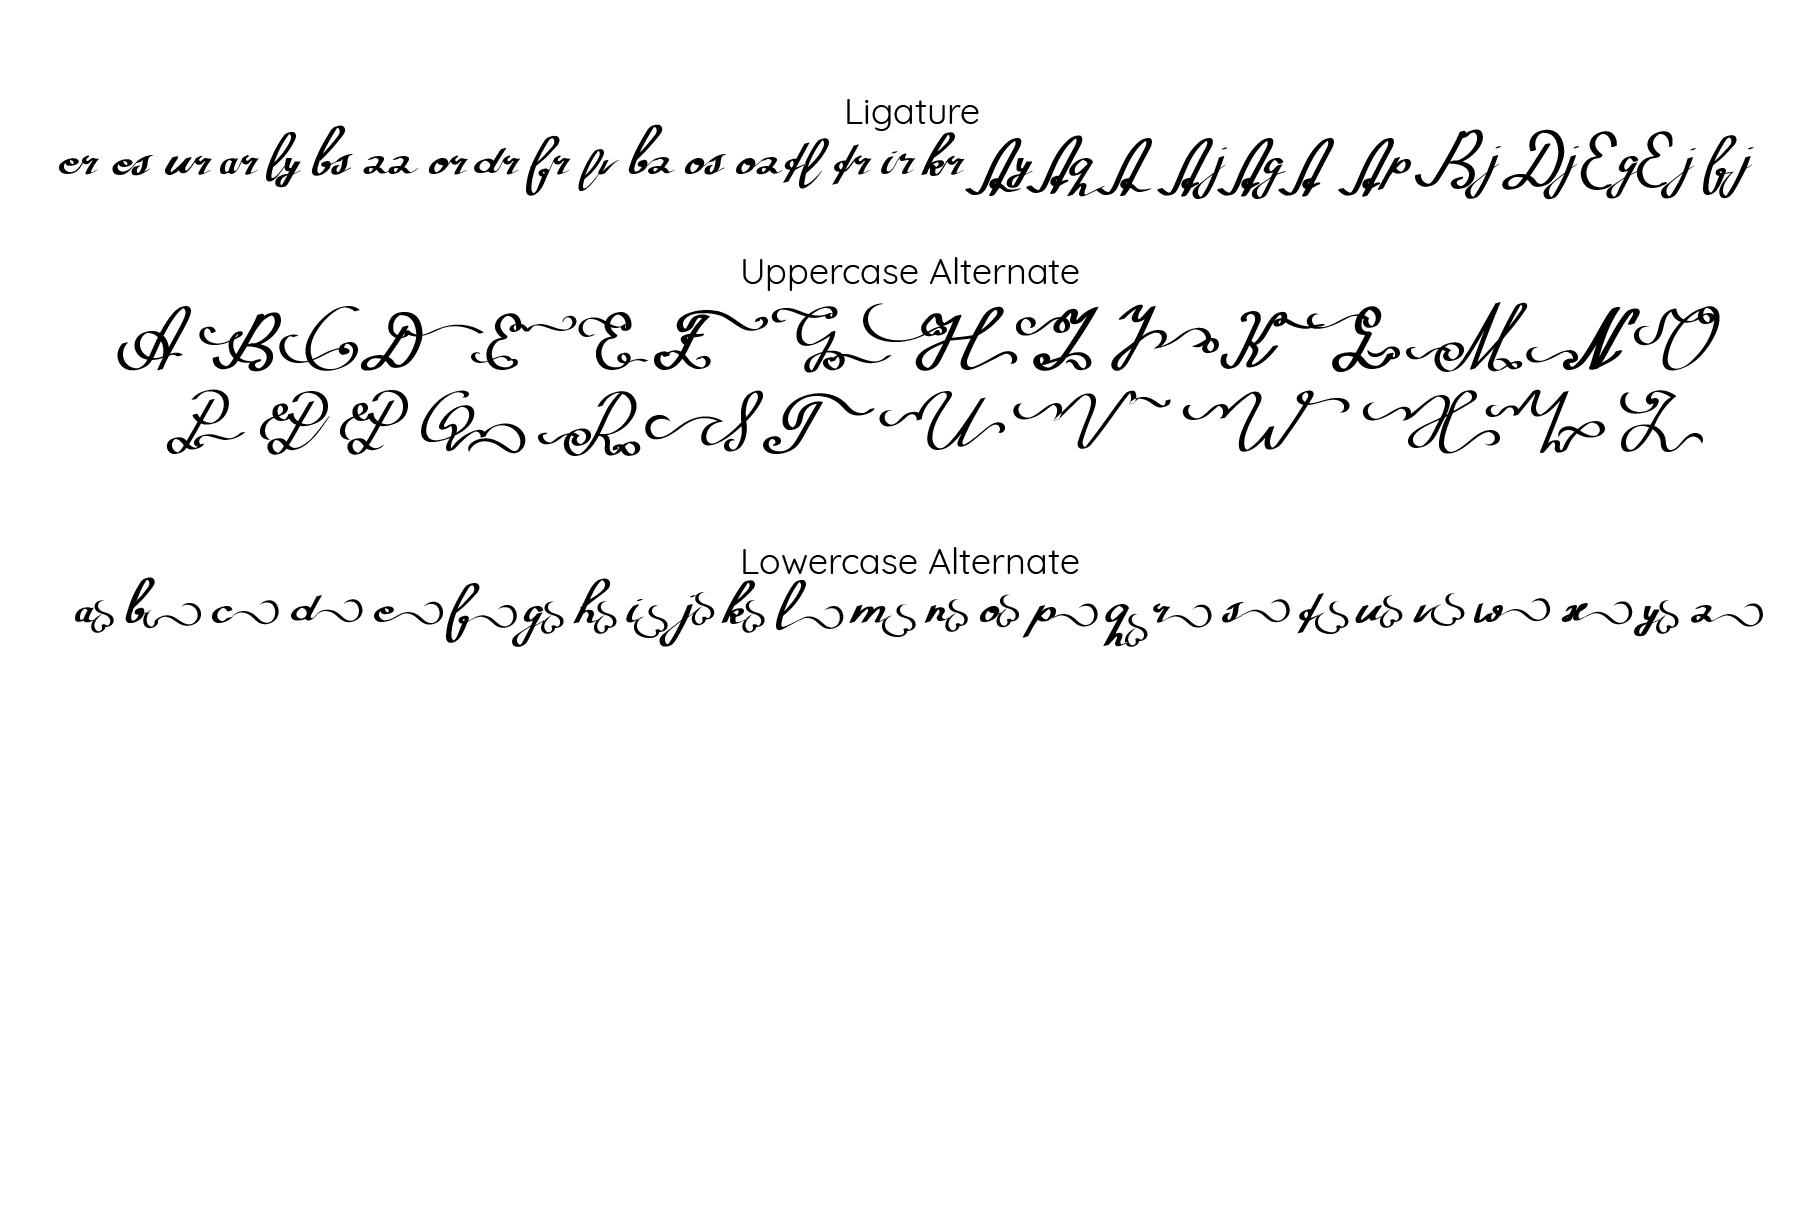 Ligature
er es ur ar ly bs zz or dr fr fv bz os oz tl tr ir kr Ay Aq A Aj Ag A Ap Bj Dj Eg Ej bj
Uppercase Alternate
A B C D E E F G H I J K L M N O
P P P Q R S T U V W X Y Z
Lowercase Alternate
a b c d e f g h i j k l m n o p q r s t u v w x y z